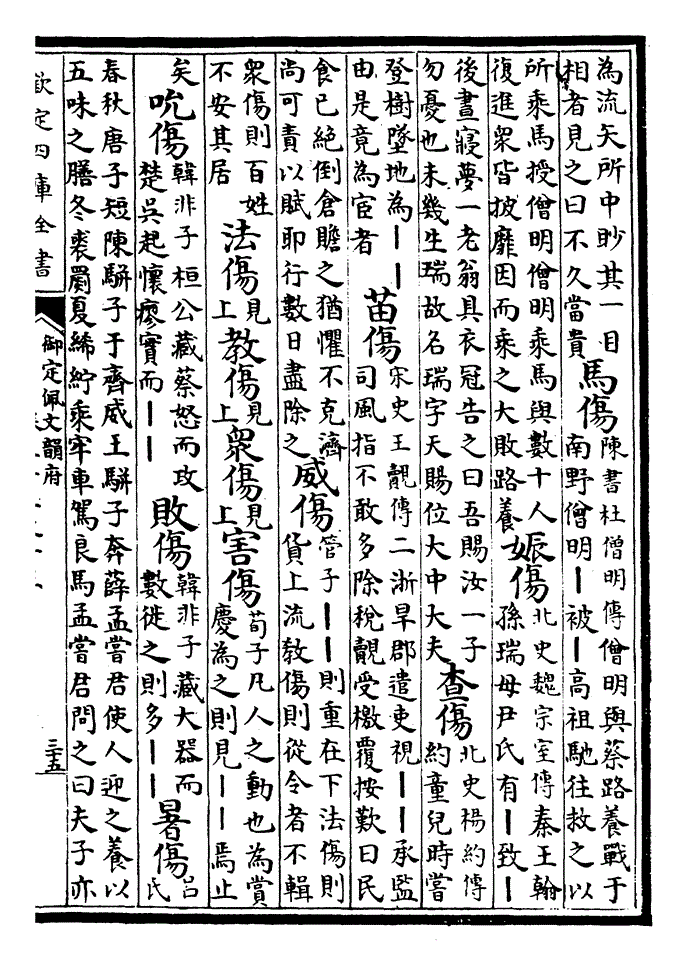 為流矢所中眇其一目
相者見之曰不久當貴
馬傷
陳書杜僧明傳僧明與蔡路養戰于
南野僧明丨被丨高祖馳往救之以
所乘馬授僧明僧明乘馬與數十人
復進衆皆披靡因而乘之大敗路養
娠傷
北史魏宗室傳秦王翰
孫瑞母尹氏有丨致丨
後晝寢夢一老翁具衣冠告之曰吾賜汝一子
勿憂也未幾生瑞故名瑞字天賜位大中大夫
查傷
北史楊約傳
約童兒時嘗
登樹墜地為丨丨
由是竟為宦者
苗傷
宋史王覿傳二浙旱郡遣吏視丨丨承監
司風指不敢多除稅覿受檄覆按歎曰民
食已絕倒倉贍之猶懼不克濟
尚可責以賦耶行數日盡除之
威傷
管子丨丨則重在下法傷則
貨上流教傷則從令者不輯
衆傷則百姓
不安其居
法傷
見上
教傷
見上
衆傷
見上
害傷
荀子凡人之動也為賞
慶為之則見丨丨焉止
矣
吮傷
韓非子桓公藏蔡怒而攻
楚吳起懷瘳實而丨丨
敗傷
韓非子藏大器而
數徙之則多丨丨
暑傷
呂
氏
春秋唐子短陳駢子于齊威王駢子奔薛孟嘗君使人迎之養以
五味之膳冬裘罽夏絺紵乘牢車駕良馬孟嘗君問之曰夫子亦
欽定四庫全書
御定佩文韻府
三五